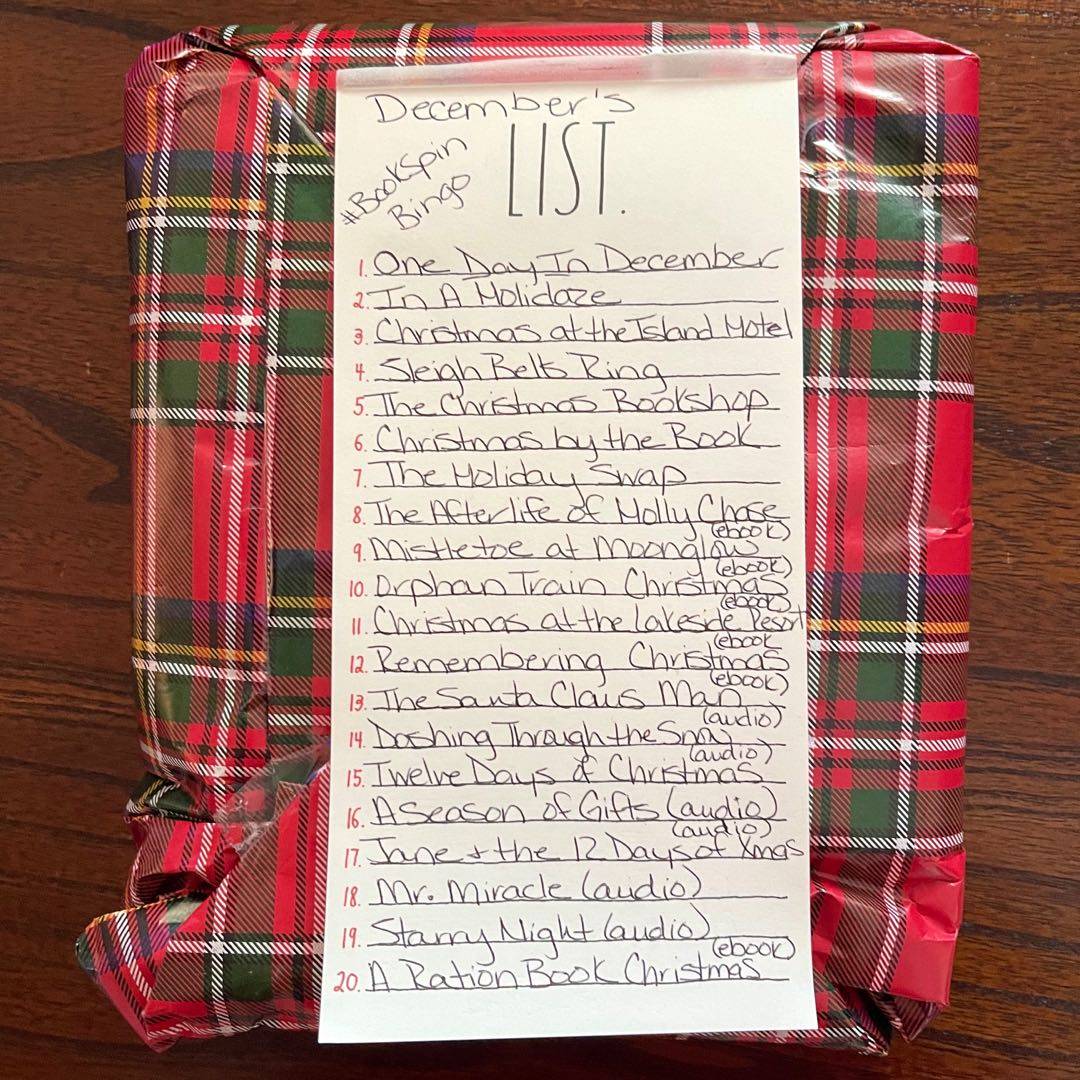 December's
#BookSpin
Bingo
LIST.
1. One Day In December
2. In A Holidaze
3. Christmas at the Island Hotel
4. Sleigh Bells Ring
5. The Christmas Bookshop
6. Christmas by the Book
7. The Holiday Swap
8. The Afterlife of Holly Chase
(ebook)
9. Mistletoe at Moonglow
(ebook)
10. Orphan Train Christmas
(ebook)
11. Christmas at the Lakeside Resort
(ebook
12. Remembering Christmas
(ebook)
13. The Santa Claus Man
(audio)
14. Dashing Through the Snow
(audio)
15. Twelve Days of Christmas
16. A Season of Gifts (audio)
(audio)
17. Jane & the 12 Days of Xmas
18. Mr. Miracle (audio)
19. Starry Night (audio)
(ebook)
20. A Ration Book Christmas